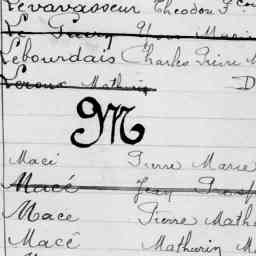 Levavasseur Theodou F
Le Guery Yves Marie
Lebourdais Charles Pierre M
Leroux Mathurin D
M
Macé Pierre Marie
Macé Jean Prosp
Mace Pierre Math
Macé Mathurin M